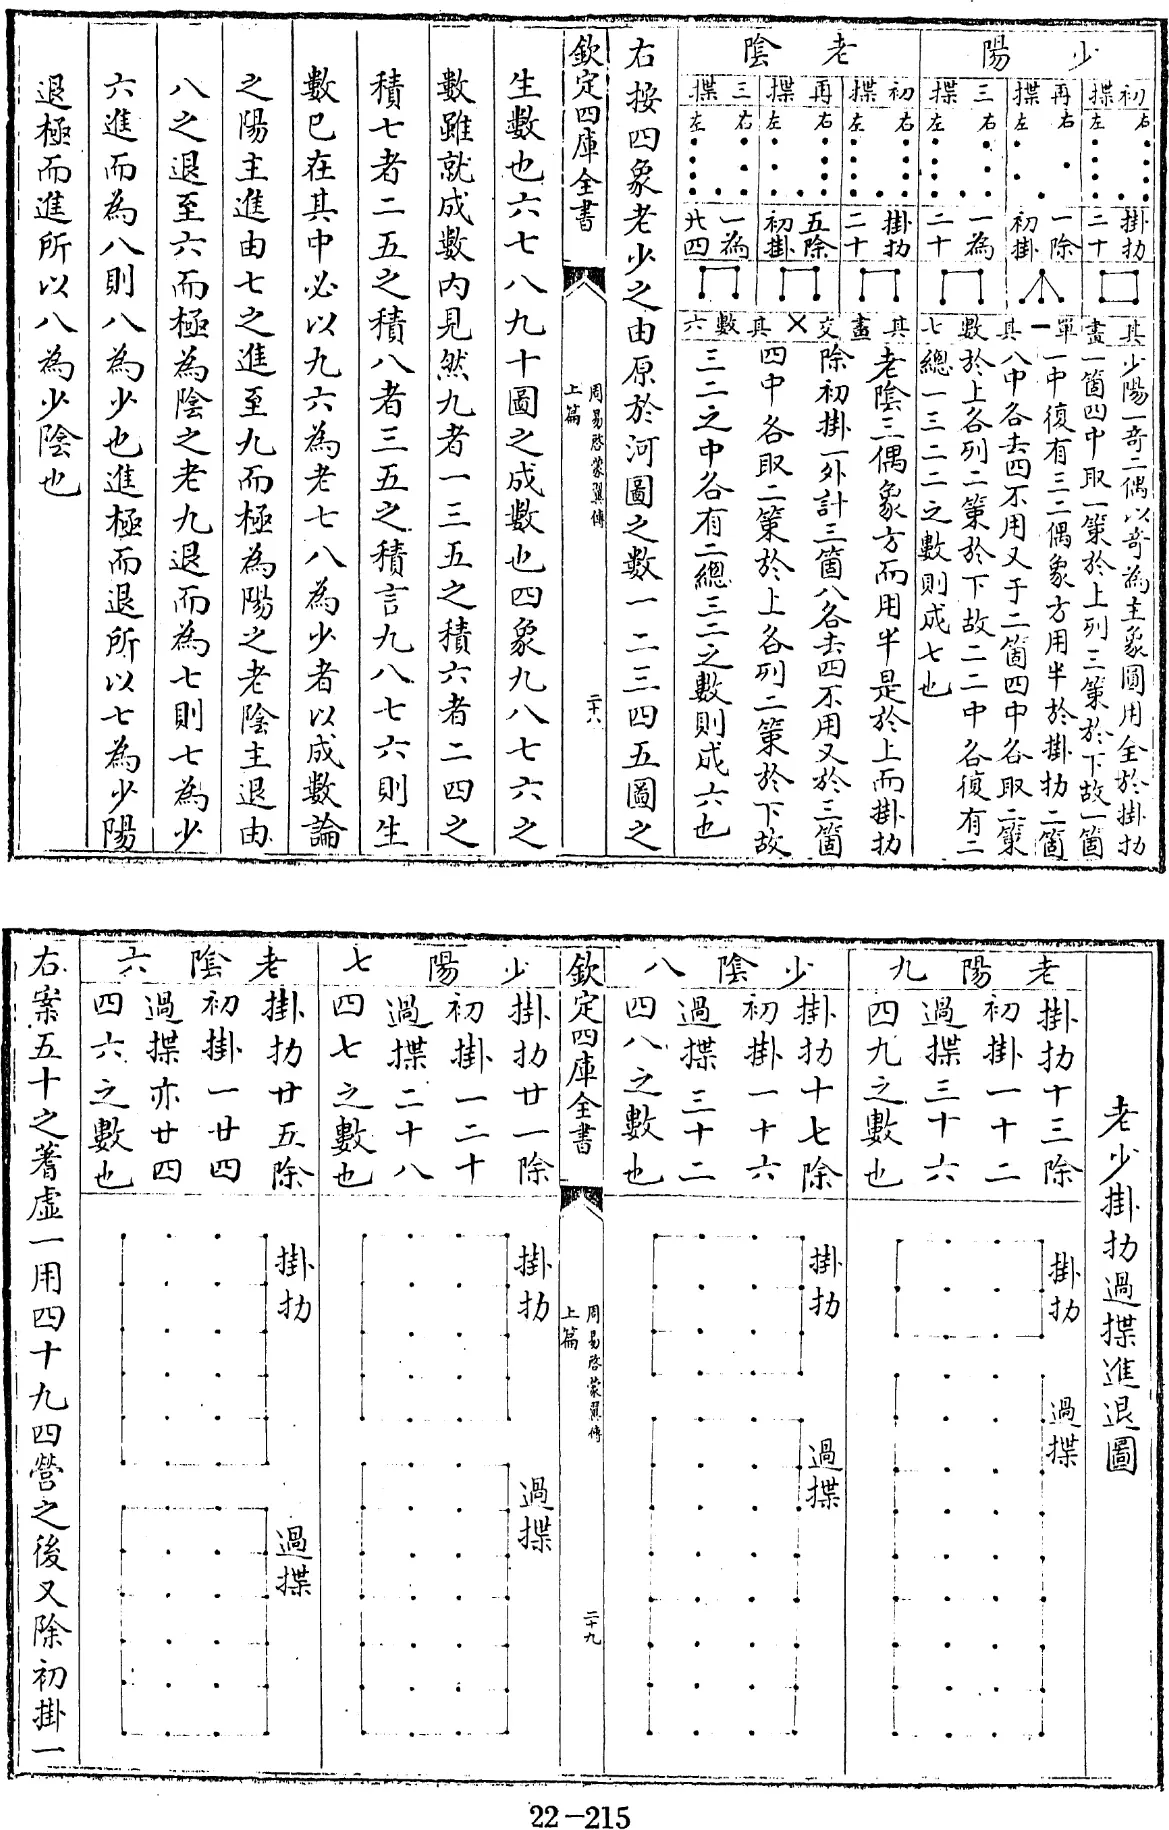 少陽
初揲
右
左
掛扐
二十
再揲
右
左
一除
初掛
三揲
右
左
一為
二十
其畫單一其數七
其少陽一奇二偶以奇為主象圓用全於掛扐
一箇四中取一策於上列三策於下故一箇
一中復有三二偶象方用半於掛扐二箇
八中各去四不用又于二箇四中各取二策
於上各列二策於下故二二中各復有二
總一三二二之數則成七也
老陰
初揲
右
左
掛扐
二十
再揲
右
左
五除
初掛
三揲
右
左
一為
廿四
其畫交乂其數六
老陰三偶象方而用半是於上而掛扐
除初掛一外計三箇八各去四不用又於三箇
四中各取二策於上各列二策於下故
三二之中各有二總三二之數則成六也
右按四象老少之由原於河圖之數一二三四五圖之
欽定四庫全書
周易啓蒙翼傳
上篇
二十八
生數也六七八九十圖之成數也四象九八七六之
數雖就成數內見然九者一三五之積六者二四之
積七者二五之積八者三五之積言九八七六則生
數已在其中必以九六為老七八為少者以成數論
之陽主進由七之進至九而極為陽之老陰主退由
八之退至六而極為陰之老九退而為七則七為少
六進而為八則八為少也進極而退所以七為少陽
退極而進所以八為少陰也
老少掛扐過揲進退圖
老陽九
掛扐十三除
初掛一十二
過揲三十六
四九之數也
掛扐
過揲
少陰八
掛扐十七除
初掛一十六
過揲三十二
四八之數也
掛扐
過揲
欽定四庫全書
周易啓蒙翼傳
上篇
二十九
少陽七
掛扐廿一除
初掛一二十
過揲二十八
四七之數也
掛扐
過揲
老陰六
掛扐廿五除
初掛一廿四
過揲亦廿四
四六之數也
掛扐
過揲
右案五十之蓍虛一用四十九四營之後又除初掛一
22-215